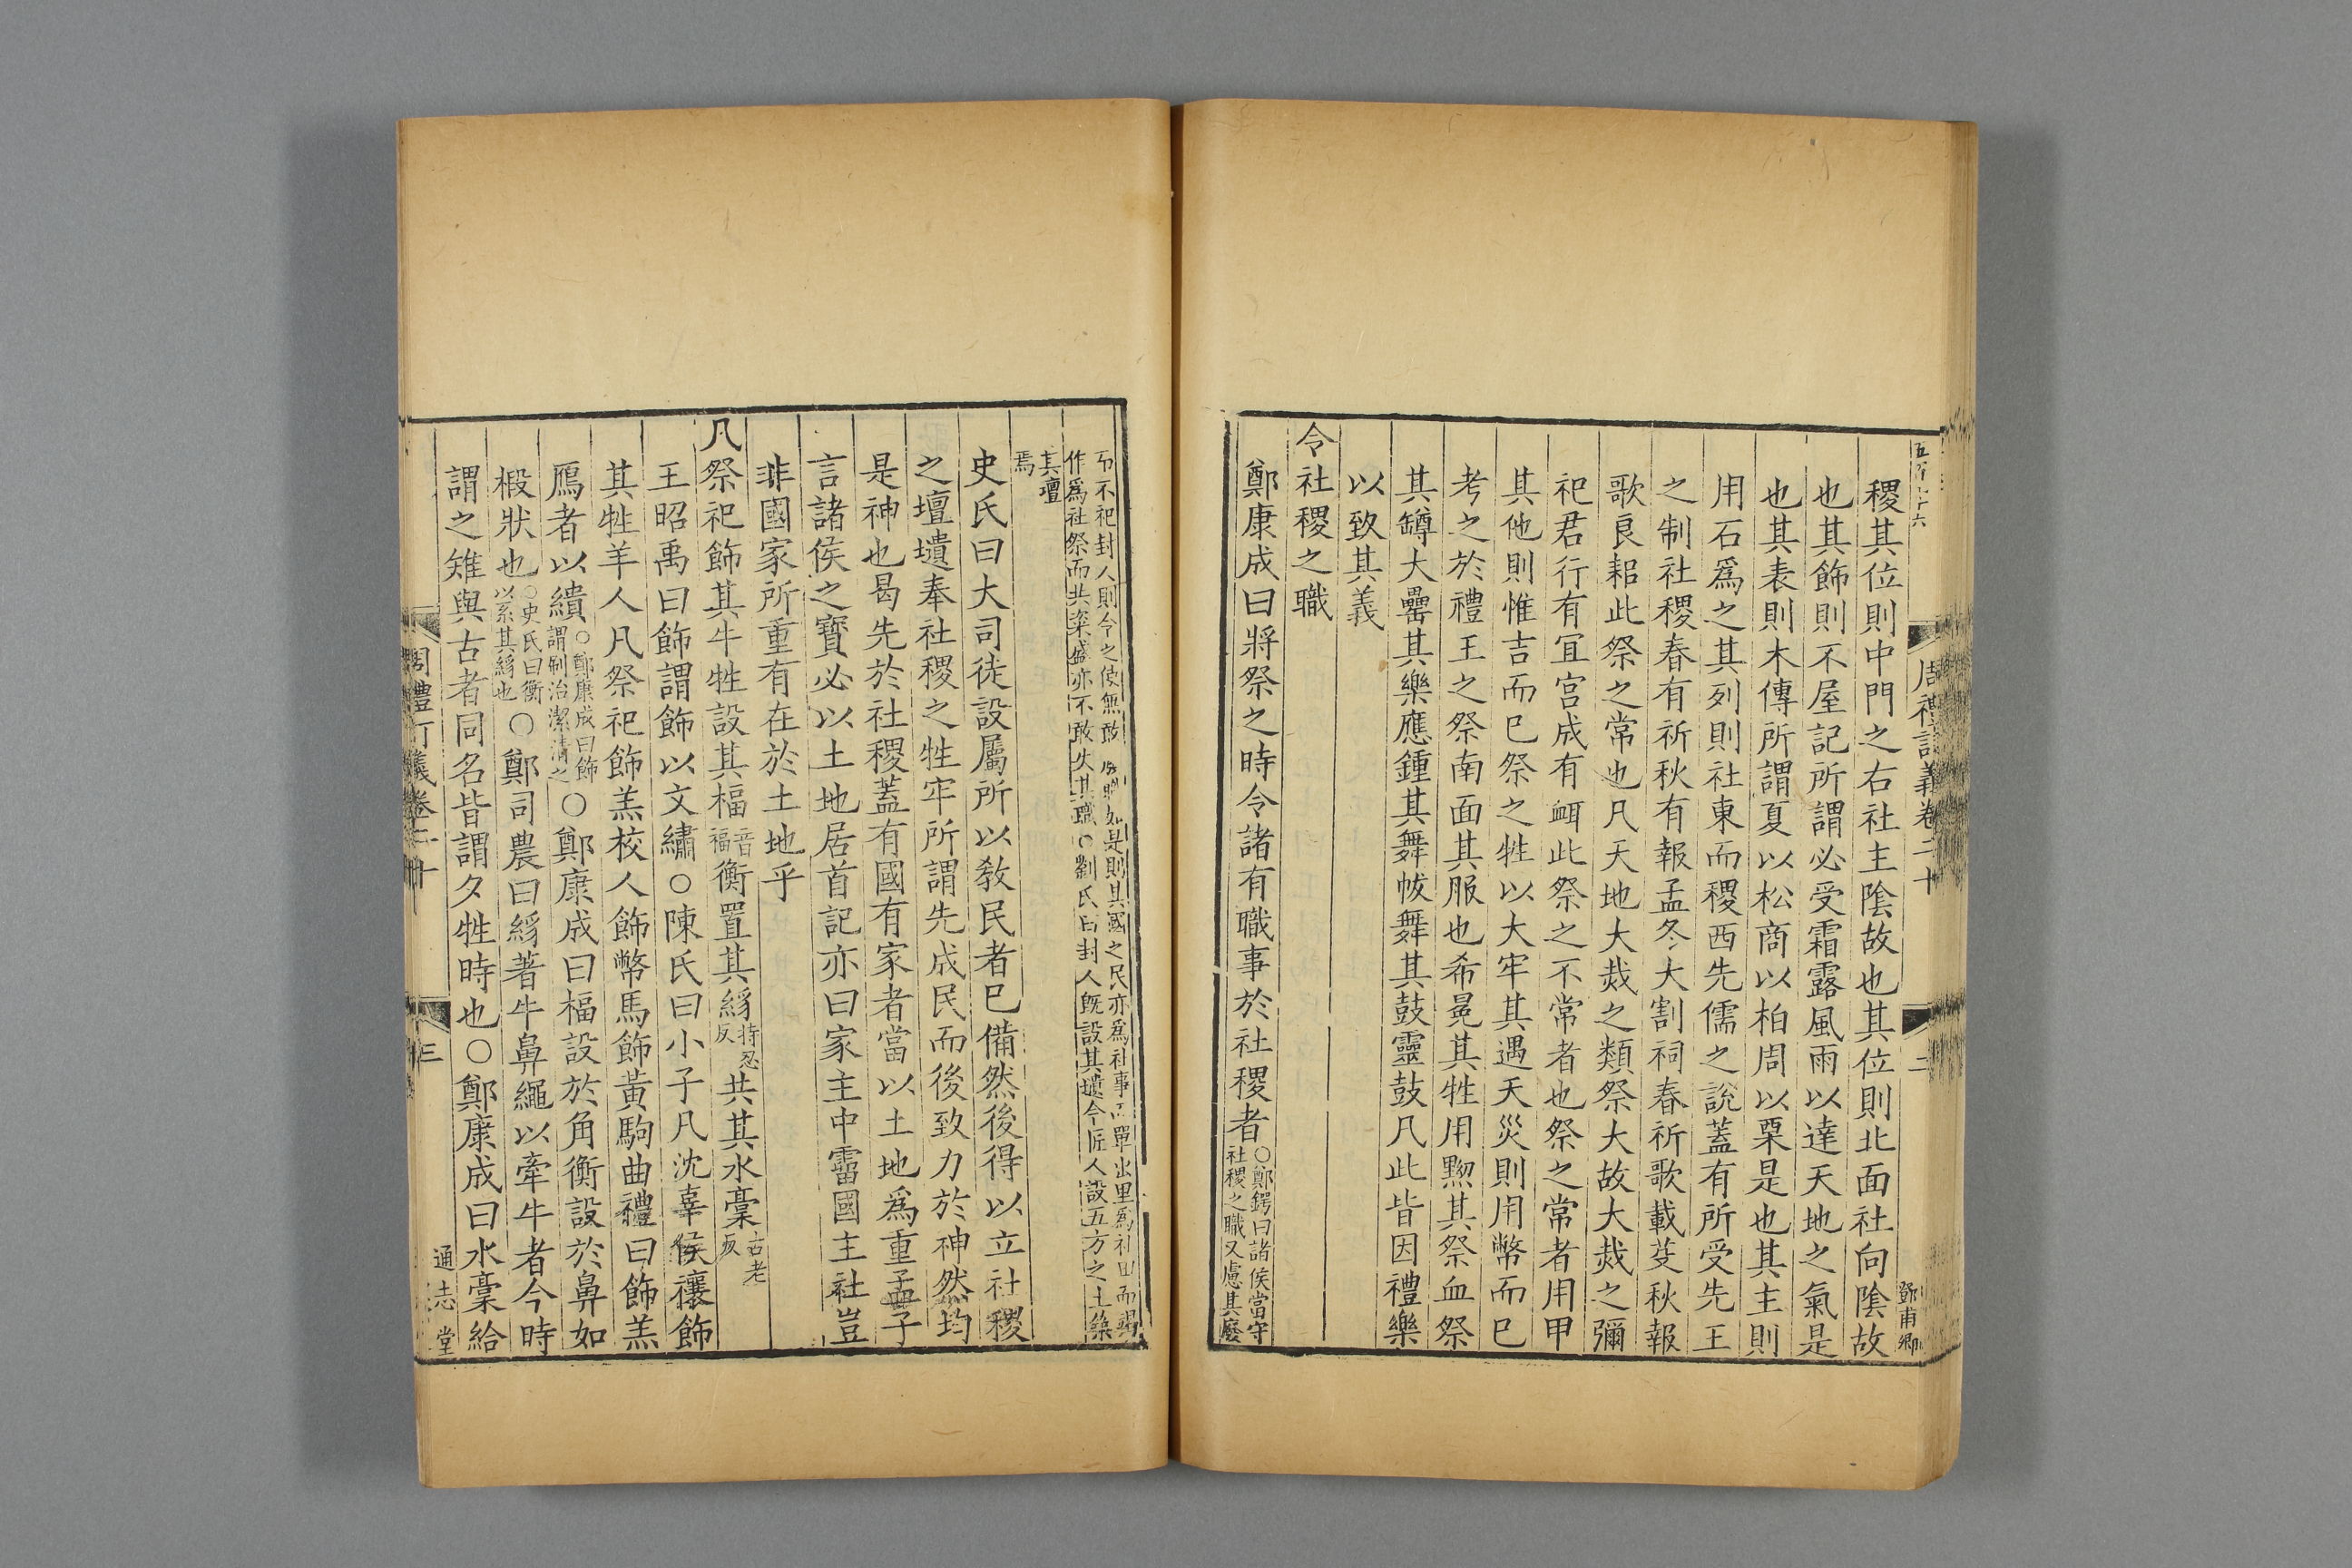 周禮訂義卷二十
二
鄧甫卿
稷其位則中門之右社主陰故也其位則北面社向陰故
也其飾則不屋記所謂必受霜露風雨以達天地之氣是
也其表則木傳所謂夏以松商以柏周以栗是也其主則
用石爲之其列則社東而稷西先儒之說蓋有所受先王
之制社稷春有祈秋有報孟冬大割祠春祈歌載芟秋報
歌良耜此祭之常也凡天地大烖之類祭大故大烖之彌
祀君行有冝宫成有衈此祭之不常者也祭之常者用甲
其他則惟吉而已祭之牲以大牢其遇天災則用幣而已
考之於禮王之祭南面其服也希冕其牲用黝其祭血祭
其罇大罍其樂應鍾其舞帗舞其鼓靈鼓凡此皆因禮樂
以致其義
令社稷之職
鄭康成曰將祭之時令諸有職事於社稷者
○鄭鍔曰諸侯當守
社稷之職又慮其廢
而不祀封人則令之使無敢 如是則其國之民亦爲社事而單出里爲社田而竭
作爲社祭而共粢盛亦不敢失其職○劉氏曰封人旣設其壝今匠人設五方之土築
其壇
焉
史氏曰大司徒設屬所以敎民者已備然後得以立社稷
之壇壝奉社稷之牲牢所謂先成民而後致力於神然均
是神也曷先於社稷蓋有國有家者當以土地爲重孟子
言諸侯之寶必以土地居首記亦曰家主中霤國主社豈
非國家所重有在於土地乎
凡祭祀飾其牛牲設其楅音福衡置其絼持忍反共其水稾古老反
王昭禹曰飾謂飾以文繡○陳氏曰小子凡沈辜侯禳飾
其牲羊人凡祭祀飾羔校人飾幣馬飾黃駒曲禮曰飾羔
鴈者以繢○鄭康成曰飾謂刷治潔清之○鄭康成曰楅設於角衡設於鼻如
椴狀也○史氏曰衡以系其絼也○鄭司農曰絼著牛鼻繩以牽牛者今時
謂之雉與古者同名皆謂夕牲時也○鄭康成曰水稾給
周禮訂義卷二十
三
通志堂